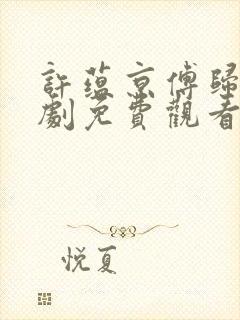 許蘊京傅歸
劇免費觀看
悦夏